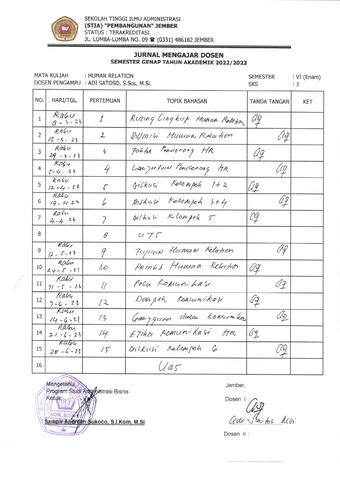 SEKOLAH TINGGI ILMU ADMINISTRASI
(STIA) "PEMBANGUNAN" JEMBER
STATUS : TERAKREDITASI
JL. LUMBA-LUMBA NO. 09 ☎ (0331) 486182 JEMBER
JURNAL MENGAJAR DOSEN
SEMESTER GENAP TAHUN AKADEMIK 2022/2023
MATA KULIAH : HUMAN RELATION SEMESTER : VI (Enam)
DOSEN PENGAMPU : ADI SATOSO, S.Sos, M.Si. SKS : 3
NO. HARI/TGL. PERTEMUAN TOPIK BAHASAN TANDA TANGAN KET
1 Rabu 8-3-23 1 Ruang Lingkup Human Relation
2 Rabu 15-3-23 2 Definisi Human Relation
3 Rabu 29-3-23 3 Faktor Pendorong HR
4 Rabu 5-4-23 4 Lanjutan Pendorong HR
5 Rabu 12-4-23 5 Diskusi Kelompok 1+2
6 Rabu 19-4-23 6 Diskusi Kelompok 3+4
7 Rabu 7 Diskusi Kelompok 5
8 8 UTS
9 Rabu 17-5-23 9 Tujuan Human Relation
10 Rabu 24-5-23 10 Human Relation
11 Rabu 31-5-23 11 Pola Komunikasi
12 Rabu 7-6-23 12 Dampak Komunikasi
13 Rabu 14-6-23 13 Gangguan dalam Komunikasi
14 Rabu 21-6-23 14 Etika Komunikasi HR
15 Rabu 28-6-23 15 Diskusi Kelompok 6
16 UAS
Mengetahui, Jember,
Program Studi Administrasi Bisnis
Ketua Dosen I :
Sampir Andrean Sukoco, S.I.Kom, M.Si
Dosen II :